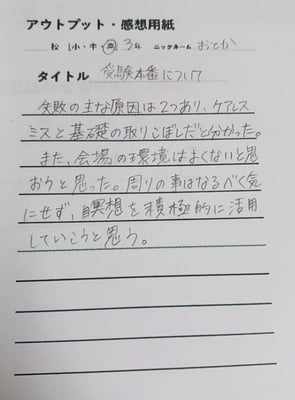 アウトプット・感想用紙
松 [小・中・高] 3年 ニックネーム おとか
タイトル 受験本番について
失敗の主な原因は2つあり、ケアレス
ミスと基礎の取りこぼしだと分かった。
また、会場の環境はよくないと思
おうと思った。周りの事はなるべく気
にせず、瞑想を積極的に活用
していこうと思う。